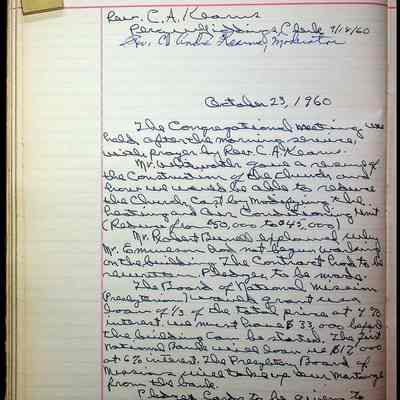 Rev. C. A. Kearns
Percy Widdings, Clerk 9/18/60
Rev. C. Kearns, Moderator
October 23, 1960
The Congregational Meeting was
held after the morning service,
with prayer by Rev. C. A. Kearns.
Mr. Whitworth gave a review of
the Construction of the Church and
how we would be able to reduce
the Church Cost by Modifying the
heating and Air Conditioning Unit
(Reduce from $50,000 to $45,000)
Mr. Robert explained why
Mr. had not begun work
on the building. The Contract had to be
rewritten. Pledges to be made.
The Board of National Mission
(Presbyterian) would grant us a
loan of 1/3 of the total price at 4%
interest. We must have $33,000 before
the building can be started. The First
National Bank will loan us $12,000
at 6% interest. The Presbytery Board of
Missions will take up our Mortgage
from the bank.
Pledge Cards to be given to